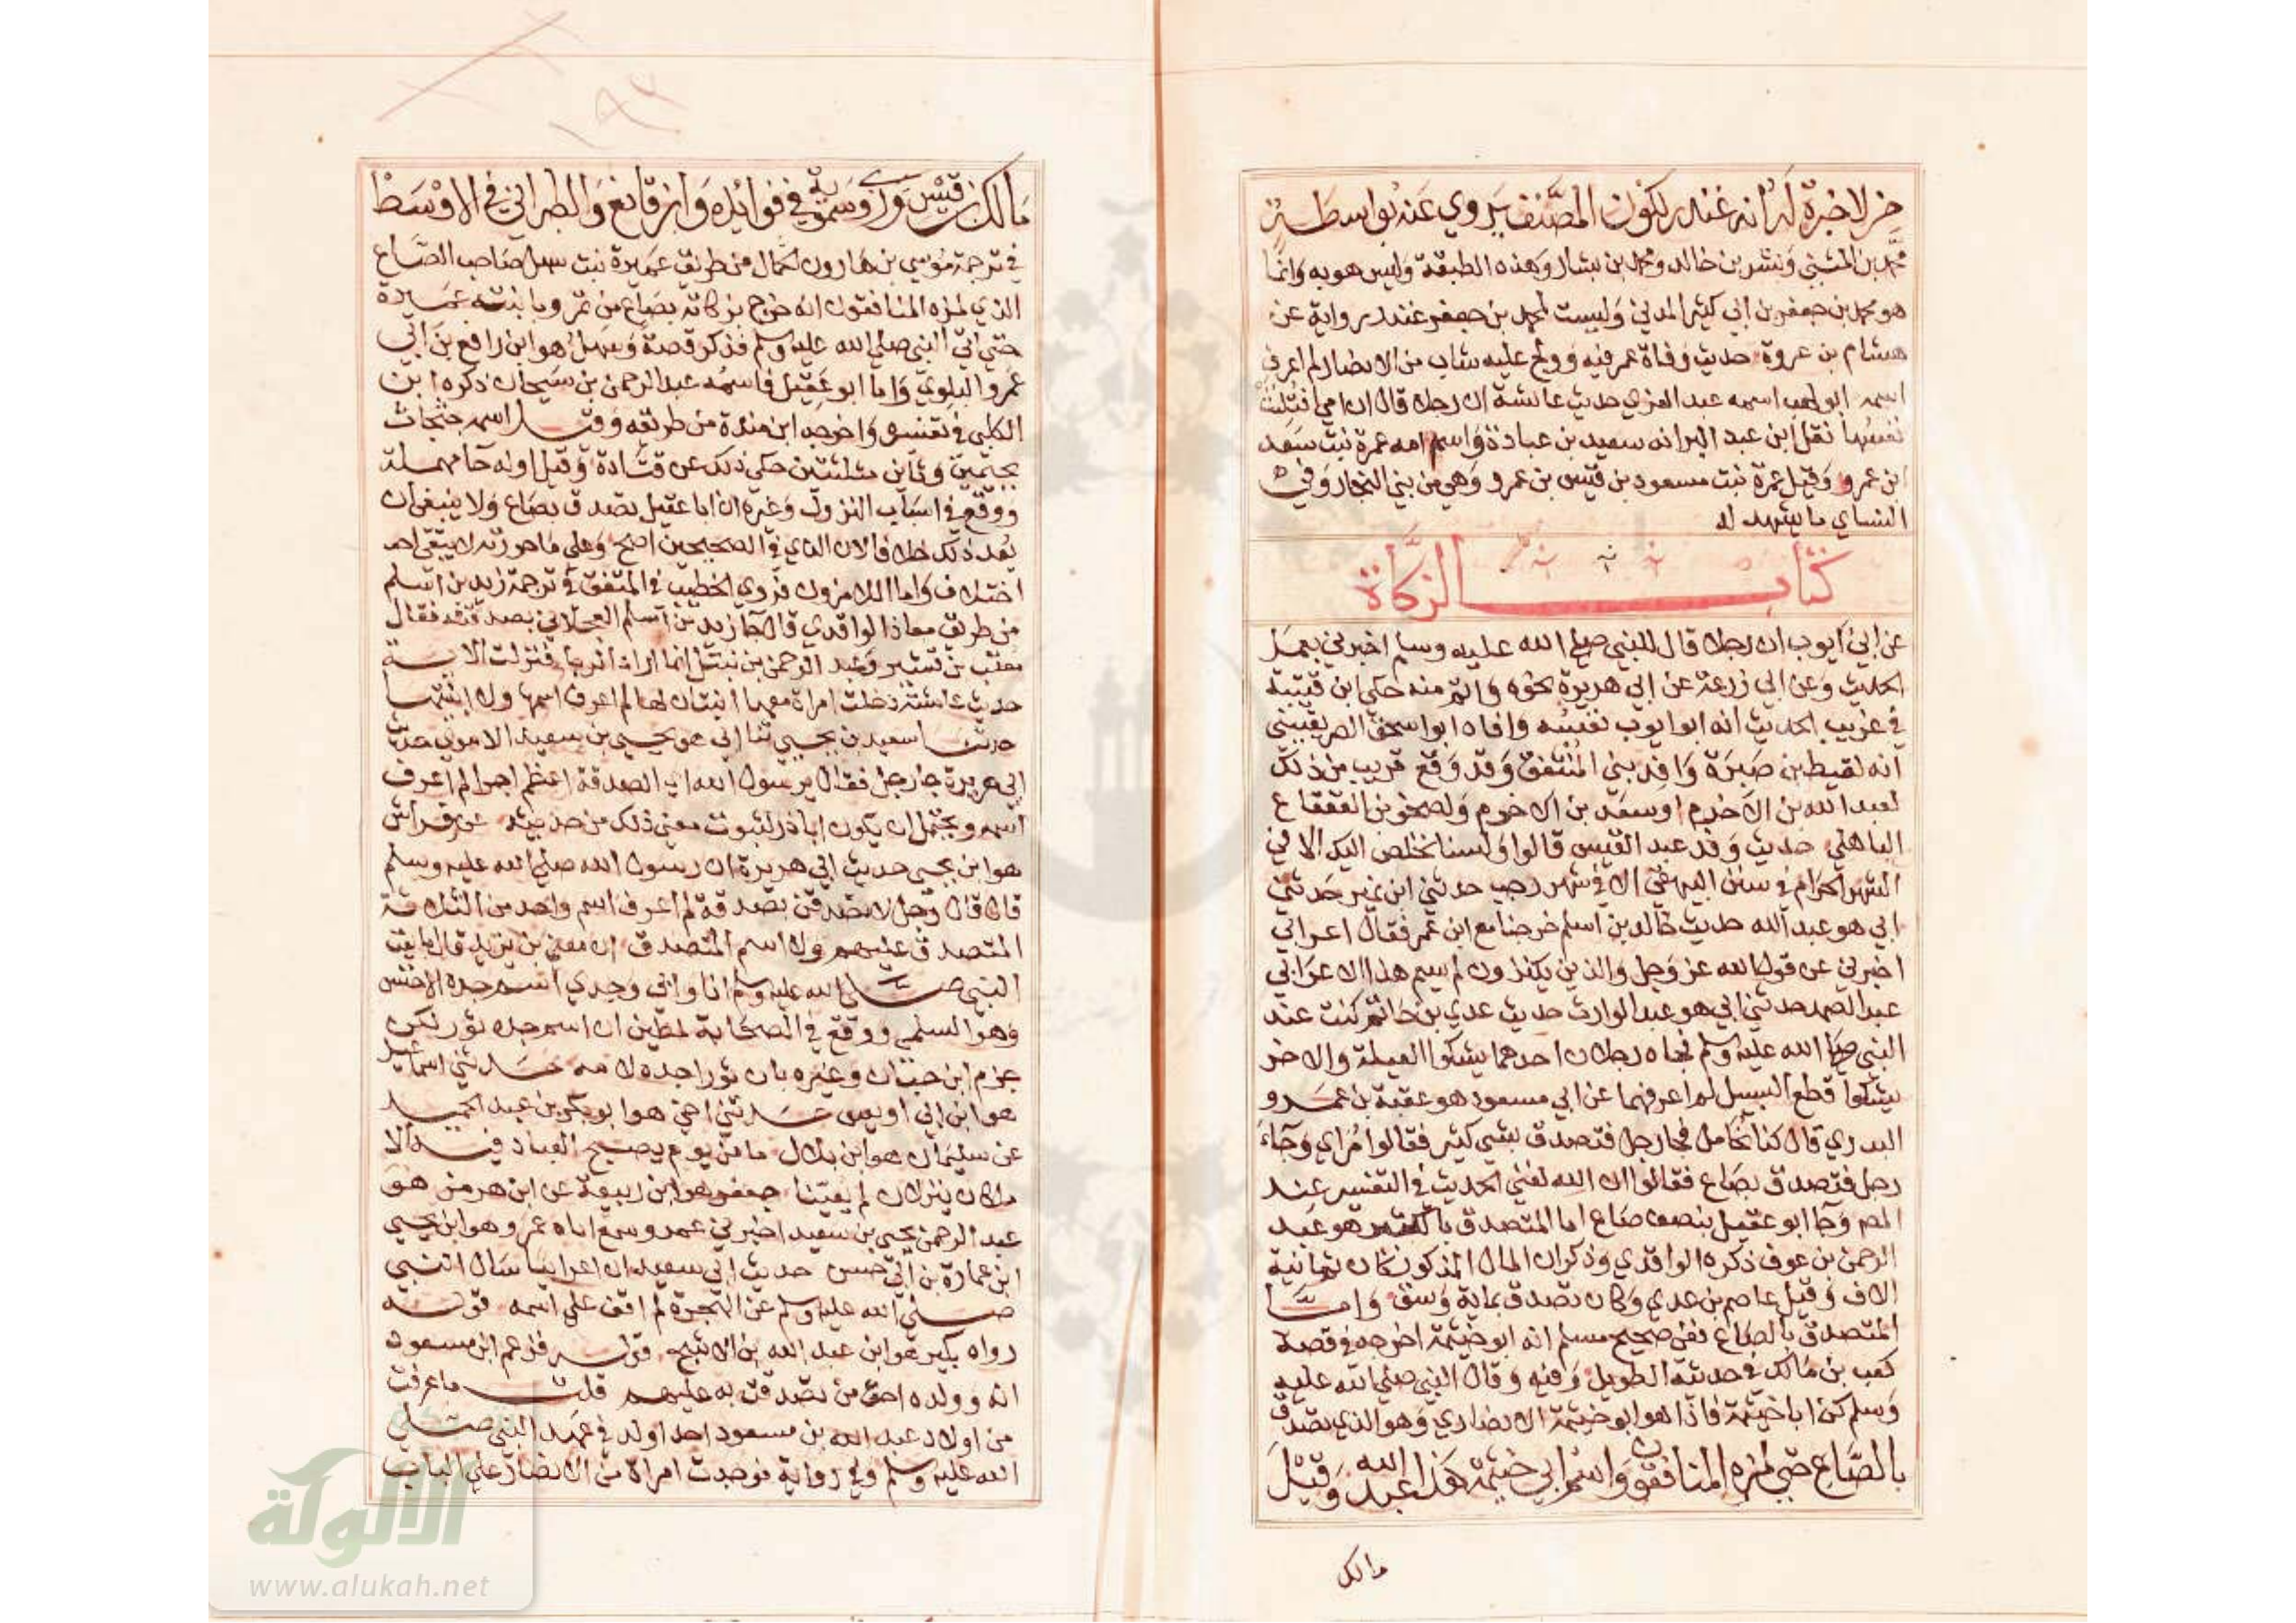 من لا خبرة له انه غندر لكون المصنف يروي عنه بواسطة
محمد بن المثنى وبشر بن خالد ومحمد بن بشار وهذه الطبقة وليس هو به وانما
هو محمد بن جعفر بن ابي كثير المدني وليست لمحمد بن جعفر غندر رواية عن
هشام بن عروة حديث وفاة عمر فيه وولج عليه شاب من الانصار لم اعرف
اسمه ابو لهب اسمه عبد العزى حديث عائشة ان رجلا قال ان امي افتلتت
نفسها نقل ابن عبد البر انه سعد بن عبادة واسم امه عمرة بنت سعد
ابن عمرو وقيل عمرة بنت مسعود بن قيس بن عمرو وهي من بني النجار وفي
النساي ما يشهد له
كتاب الزكاة
عن ابي ايوب ان رجلا قال للنبي صلى الله عليه وسلم اخبرني بعمل
الحديث وعن ابي زرعة عن ابي هريرة نحوه واتم منه حكى ابن قتيبة
في غريب الحديث انه ابو ايوب نفسه وافاد ابو اسحق الصريفيني
انه لقيط بن صبرة وافد بني المنتفق وقد وقع قريب من ذلك
لعبد الله بن الاخرم او سعد بن الاخرم ولصخر بن القعقاع
الباهلي حديث وفد عبد القيس قالوا ولسنا نخلص اليك الا في
الشهر الحرام في سنن البيهقي الا في شهر رجب حدثني ابن نمير حدثني
ابي هو عبد الله حديث خالد بن اسلم خرجنا مع ابن عمر فقال اعرابي
اخبرني عن قول الله عز وجل والذين يكنزون لم يسم هذا الاعرابي
عبد الصمد حدثني ابي هو عبد الوارث حديث عدي بن حاتم كنت عند
النبي صلى الله عليه وسلم فجاه رجلان احدهما يشكوا العيلة والاخر
يشكوا قطع السبيل لم اعرفهما عن ابي مسعود هو عقبة بن عمرو
البدري قال كنا نحامل فجا رجل فتصدق بشي كثير فقالوا مراي وجاء
رجل فتصدق بصاع فقالوا ان الله لغني الحديث في التفسير عند
المص وجا ابو عقيل بنصف صاع اما المتصدق بالكثير هو عبد
الرحمن بن عوف ذكره الواقدي وذكر ان المال المذكور كان ثمانية
الاف وقيل عاصم بن عدي وكان تصدق بماية وسق واما
المتصدق بالصاع ففي صحيح مسلم انه ابو خيثمة اخرجه في قصة
كعب بن مالك في حديثه الطويل وفيه وقال النبي صلى الله عليه
وسلم كن ابا خيثمة فاذا هو ابو خيثمة الانصاري وهو الذي تصدق
بالصاع حتى لمزه المنافقون واسم ابي خيثمة هذا عبد الله وقيل
مالك
مالك بن قيس وروى سمويه في فوائده وابن قانع والطبراني في الاوسط
في ترجمة موسى بن هارون الحمال من طريق عميرة بنت سهل صاحب الصاع
الذي لمزه المنافقون انه خرج بزكاته بصاع من تمر وبابنته عميرة
حتى اتى النبي صلى الله عليه وسلم فذكر قصة وسهل هو ابن رافع بن ابي
عمرو البلوي واما ابو عقيل فاسمه عبد الرحمن بن سيحان ذكره ابن
الكلبي في تفسيره واخرجه ابن مندة من طريقه وقيل اسمه جثجاث
بجيمين وثاين مثلثتين حكي ذلك عن قتادة وقيل اوله حا مهملة
ووقع في اسباب النزول وغيره ان ابا عقيل تصدق بصاع ولا ينبغي ان
يعد ذلك خطا فالان الذي في الصحيحين اصح وعلى ما حررته لا يبقى احد
اختلاف واما اللامزون فروى الخطيب في المتفق في ترجمة زيد بن اسلم
من طريق معاذ الواقدي قال جا زيد بن اسلم العجلاني بصدقته فقال
معتب بن قشير وعبد الرحمن بن نبتل انما اراد الريا فنزلت الاية
حديث عائشة دخلت امراة معها ابنتان لها لم اعرف اسمها ولا ابنتيها
حدثنا سعيد بن يحيى ثنا ابي هو يحيى بن سعيد الاموي حديث
ابي هريرة جا رجل فقال يرسول الله اي الصدقة اعظم اجرا لم اعرف
اسمه ويحتمل ان يكون ابا ذر لثبوت معنى ذلك من حديثه عن فراس
هو ابن يحيى حديث ابي هريرة ان رسول الله صلى الله عليه وسلم
قال قال رجل لاتصدقن بصدقة لم اعرف اسم واحد من الثلاثة
المتصدق عليهم ولا اسم المتصدق ان معن بن يزيد قال بايعت
النبي صلى الله عليه وسلم انا وابي وجدي اسم جده الاخنس
وهو السلمي ووقع في الصحابة لمطين ان اسم جده ثور لكن
جزم ابن حبان وغيره بان ثورا جده لامه حدثني اسماعيل
هو ابن ابي اويس حدثني اخي هو ابو بكر بن عبد الحميد
عن سليمان هو ابن بلال ما من يوم يصبح العباد فيه الا
ملكان ينزلان لم يعينا جعفر هو ابن ربيعة عن ابن هرمز هو
عبد الرحمن يحيى بن سعيد اخبرني عمرو سمع اباه عمرو هو ابن يحيى
ابن عمارة بن ابي حسن حديث ابي سعيد ان اعرابيا سال النبي
صلى الله عليه وسلم عن الهجرة لم اقف على اسمه قوله
رواه بكير هو ابن عبد الله بن الاشج قوله فزعم ابن مسعود
انه وولده احق من تصدقت به عليهم قلت ما عرفت
من اولاد عبد الله بن مسعود احد اولد في عهد النبي صلى
الله عليه وسلم وفي رواية فوجدت امراة من الانصار على الباب
الألوكة
www.alukah.net